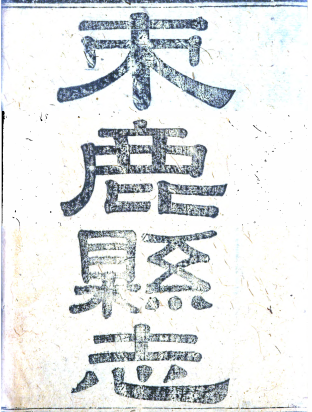 束鹿縣志